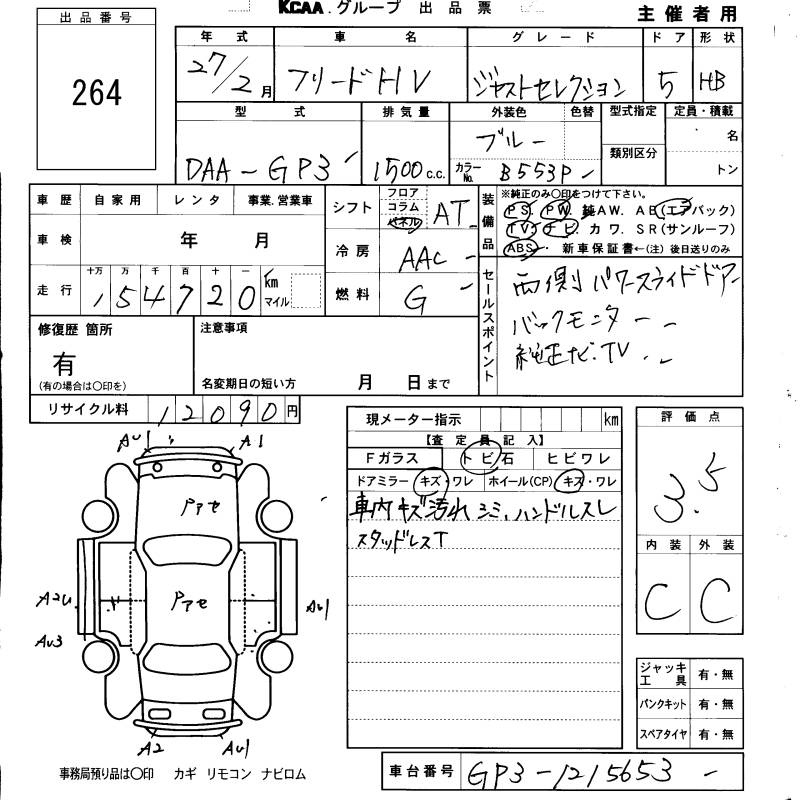 KCAA.グループ 出品票
主催者用
出品番号
264
年式 車名 グレード ドア 形状
27/2月 フリードHV ジャストセレクション 5 HB
型式 排気量 外装色 色替 型式指定 定員・積載
DAA-GP3 1500c.c. ブルー 名
カラーNo. B553P 類別区分 トン
車歴 自家用 レンタ 事業.営業車
車検 年 月
走行 十万 万 千 百 十 一
154720 km マイル
シフト フロア コラム パネル AT
冷房 AAC
燃料 G
装備品
※純正のみ○印をつけて下さい。
PS. PW. 純AW. AB(エアバック)
TV. ナビ. カワ. SR(サンルーフ)
ABS 新車保証書←(注)後日送りのみ
セールスポイント
両側パワースライドドアー
バックモニター
純正ナビ.TV
修復歴 箇所
有
(有の場合は○印を)
注意事項
名変期日の短い方 月 日まで
リサイクル料 12090円
現メーター指示 km
【査定員記入】
Fガラス トビ石 ヒビワレ
ドアミラー キズ・ワレ ホイール(CP) キズ・ワレ
車内キズ汚れシミ、ハンドルスレ
スタッドレスT
評価点
3.5
内装 外装
C C
AU1 A1
Pアセ
Pアセ
A2U
AU3
AU1
A2 AU1
ジャッキ工具 有・無
パンクキット 有・無
スペアタイヤ 有・無
事務局預り品は○印 カギ リモコン ナビロム
車台番号 GP3-1215653